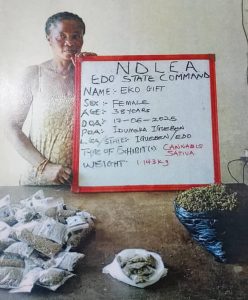 NDLEA
EDO STATE COMMAND
NAME:- EKO GIFT
SEX:- FEMALE
AGE:- 38 YEARS
DOA:- 17-06-2025
POA:- IDUMOKA IGUEBEN
L.G.A/STATE:- IGUEBEN/EDO
TYPE OF EXHIBIT(S) CANNABIS
SATIVA
WEIGHT: 1.143kg